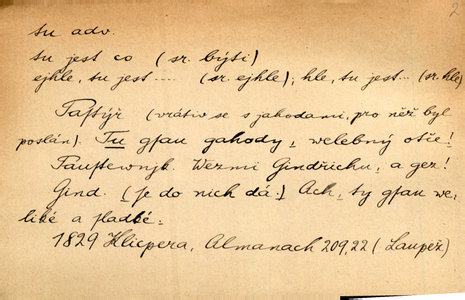 2
tu adv.
tu jest co (sr. býti)
ejhle, tu jest .... (sr. ejhle); hle, tu jest... (sr. hle)
Paſtýř (vrátiv se s jahodami, pro něž byl
poslán). Tu gſau gahody, welebný otče!
Pauſtewnjk. Wezmi Gindřichu, a gez!
Gind. (je do nich dá:) Ach, ty gſau we-
liké a ſladké:
1829 Klicpera, Almanach 209,22 (Laupež)